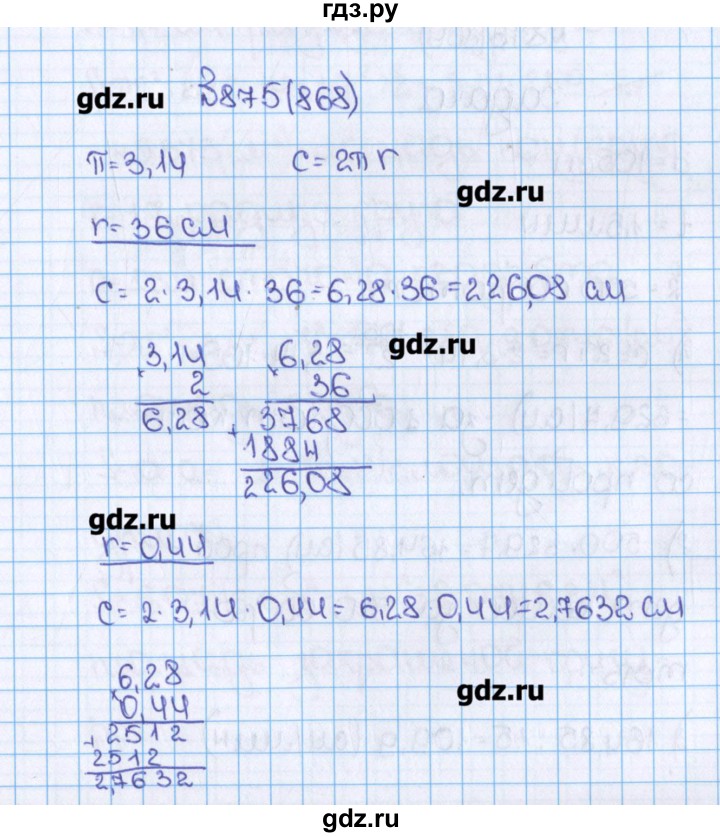 гдз.ру
gdz.ru
В875(868)
π=3,14 C=2πr
gdz.ru
r=36 см
C= 2·3,14·36=6,28·36=226,08 см
gdz.ru
3,14
× 2
6,28
6,28
× 36
+ 3768
1884
226,08
gdz.ru
r=0,44
C=2·3,14·0,44=6,28·0,44=2,7632 см
6,28
× 0,44
+ 2512
2512
2,7632
gdz.ru
gdz.ru